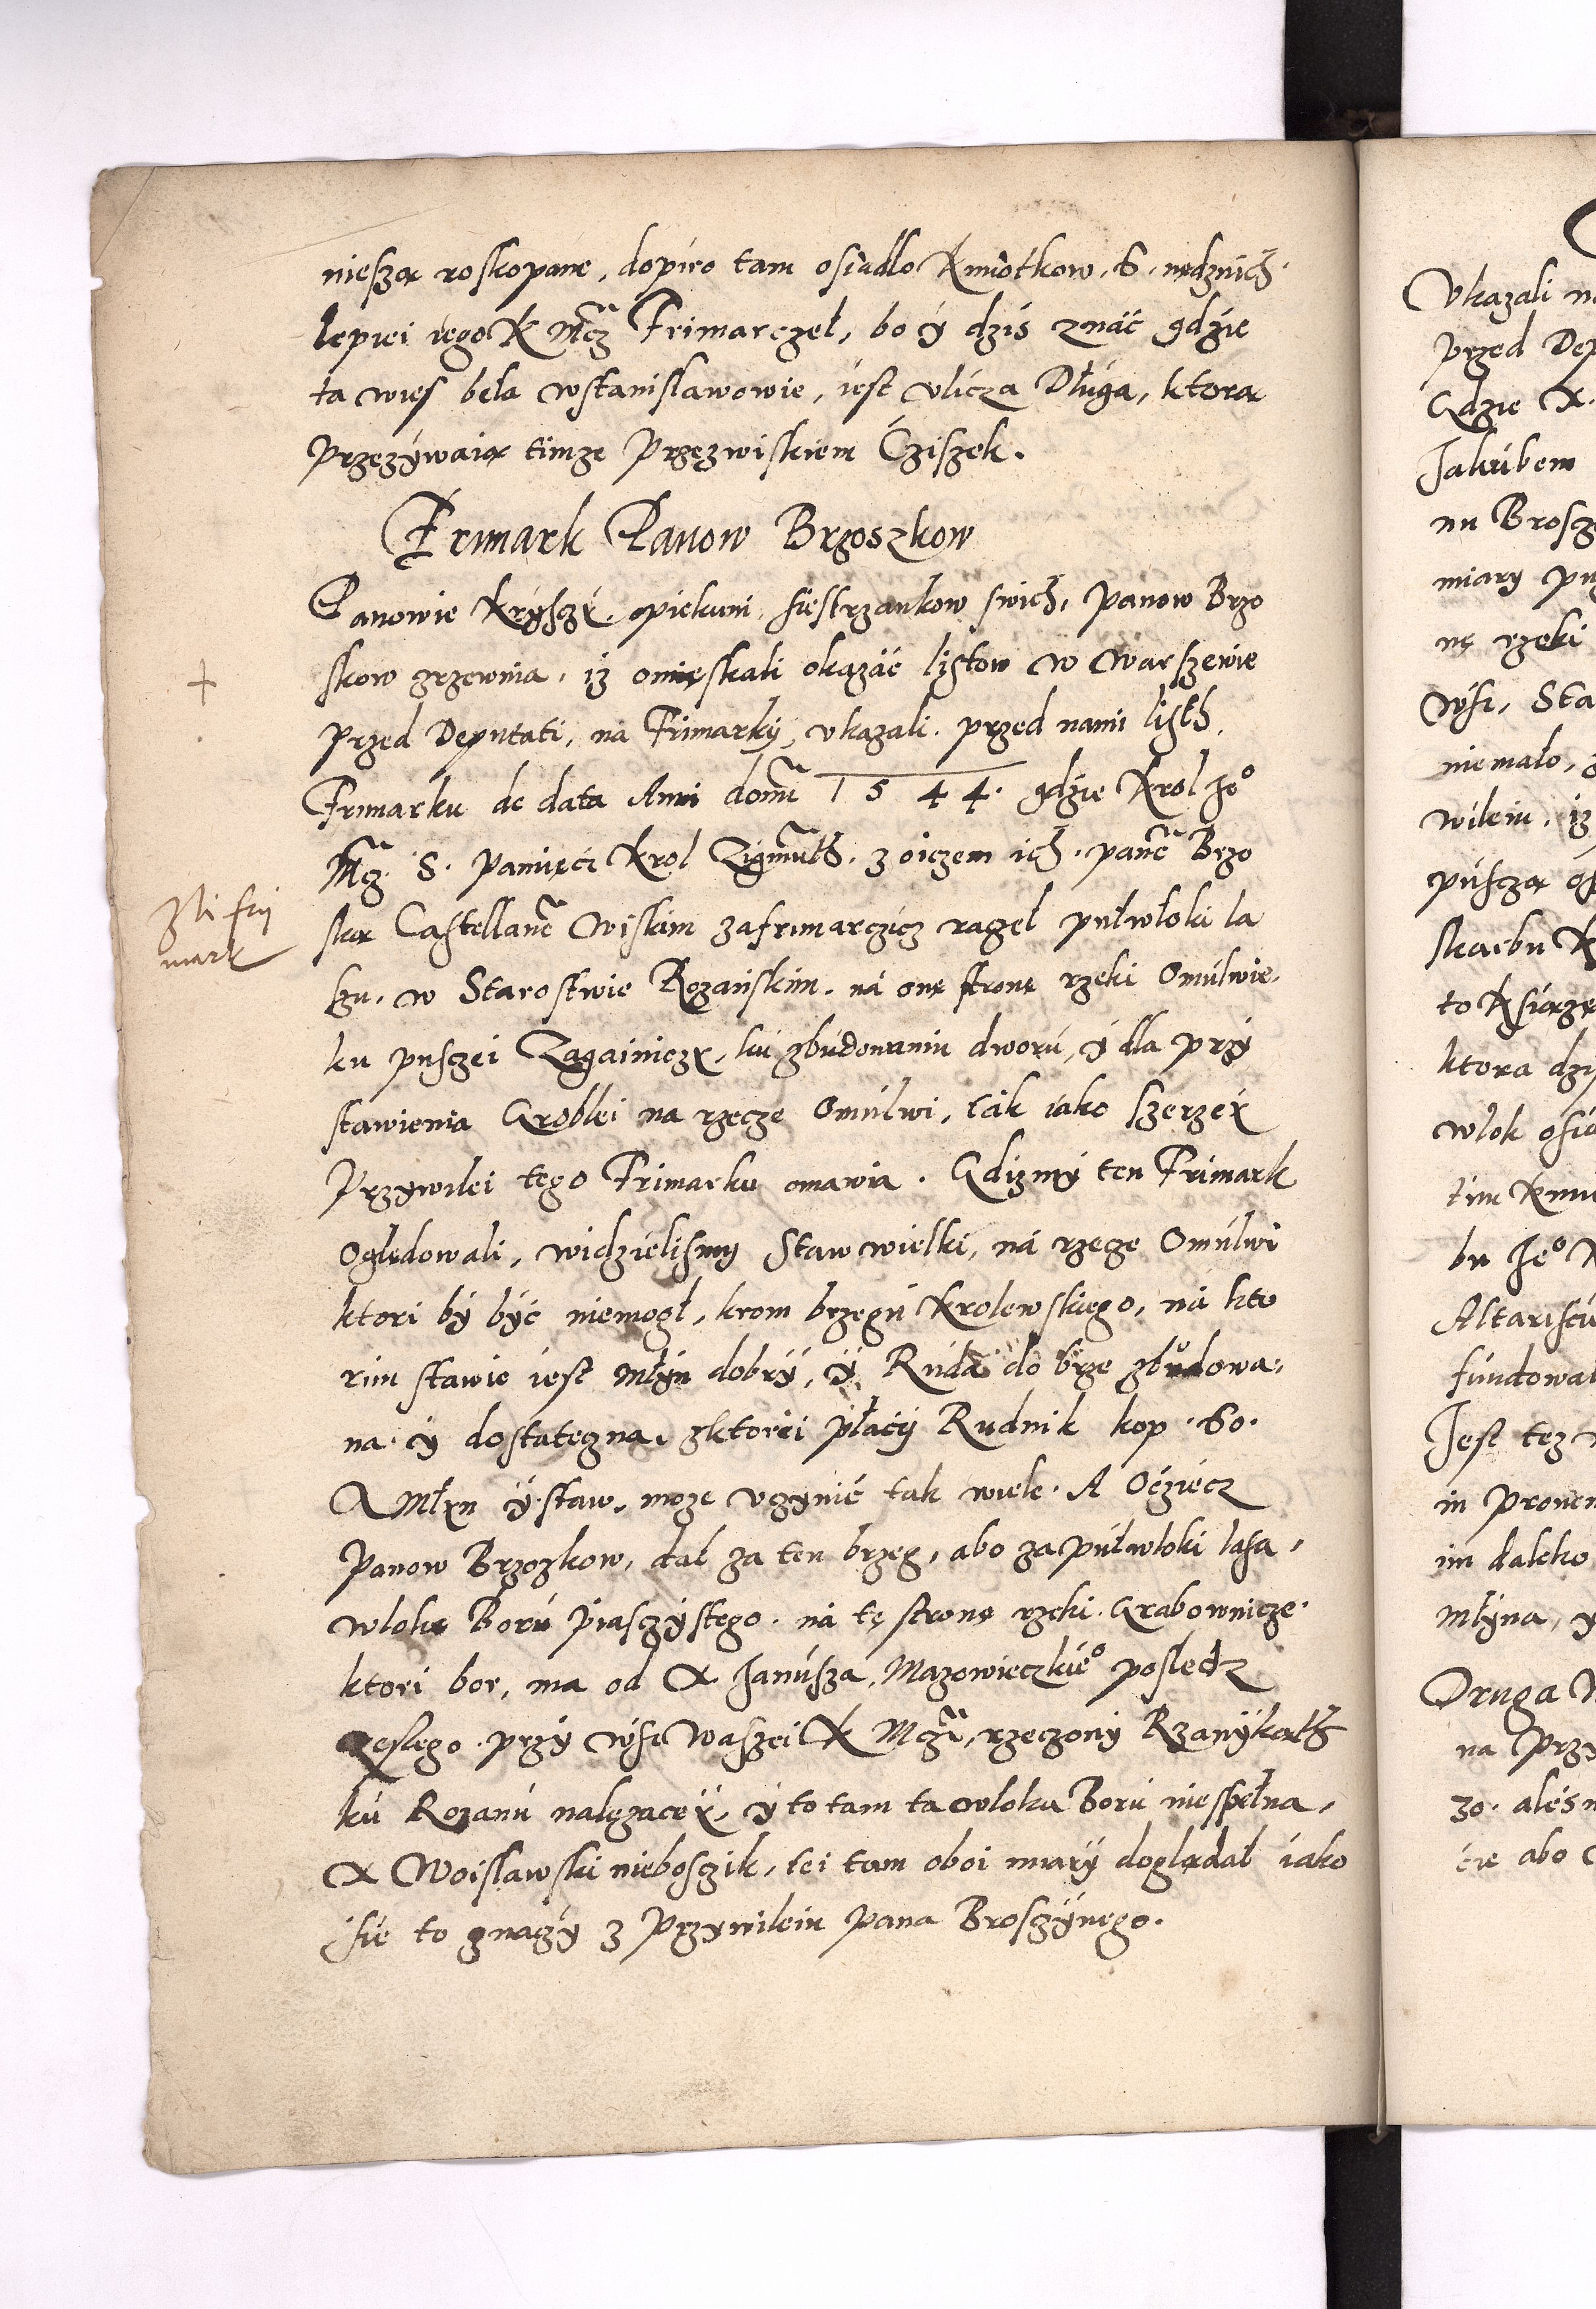 nieszą roskopane, dopiro tam osiadło Kmiotkow. 6. nędznich.
lepiei iego K Mcz Frimarczeł, bo ÿ dzis znać gdzie
ta wies beła wstanisławowie, iest vlicza Długa, ktorą
Przezÿwaią timze Przęzwiskiem Cziszek.
Frimark Panow Brzoszkow
Panowie Krÿszcÿ. opiekuni, siestrzankow swich, panow Brzo
skow zrzewnia, iz omięskali okazać listow w warszewie
przed Deputati, na Frimarkÿ, vkazali. przed nami listh,
Frimarku de data Anni domi 1544. gdzie Krol Jeo
Mcz. S. Pamięci Krol Zigmuth. z oiczem ich. pane Brzo
ską Castellane Wiskim zafrimarczicz raczeł pułwłoki la
su. w Starostwie Rozańskim. ná onę stronę rzeki Omúlwie.
ku pusczei Zagainiczÿ, kú zbúdowaniu dworú, ÿ dla przÿ
stawienia Groblei na rzecze Omúlwi, ták iako szerzeÿ
Przÿwilei tego Frimarku omawia. Gdizmÿ ten Frimark
Oględowali, widzielismy Staw wielki, ná rzece Omúlwi
ktori bÿ bÿć niemogł, krom brzegú Krolewskiego, ná kto
rim stawie iest młÿn dobrÿ, ÿ Rúda do brze zbudowa.
na ÿ dostateczna, zktorei płaćÿ Rudnik kop. 60.
A Młÿn ÿ staw. moze vczÿnić tak wiele. A Ocziecz
Panow Brzozkow, dał za ten brzeg, abo za pułwłoki lasa,
włokę Ború Piasczÿstego. ná tę stronę rzeki. Grabownicze.
ktori bor, ma od X Janúsza, Mazowieczkieo posledz
Zeslego. przÿ wsi Waszei K Mczi, rzeczonÿ Rzanÿkath
kú Rozanú nalęzaceÿ, ÿ to tam ta włoka Ború niespełna,
X Woisławski nieboszcik, tei tam oboi miarÿ doględał iako
sie to znaczÿ z Przÿwileiu pana Broszÿnego.
+
Zli fri
mark
Vkazali
przed Dep
Gdzie K.
Jakúbem
nu Brosz
miarÿ
nę rzeki
wsi, Sta
niemało,
wileiu, iz
púsczą
skarbu K
to Ksiązę
ktora
włok
tim
bu Jeo
Altaristú
fúndował
Jest tez
in proven
im daleko
Młÿna, ÿ
Druga
na Przÿ
30. ales
abo